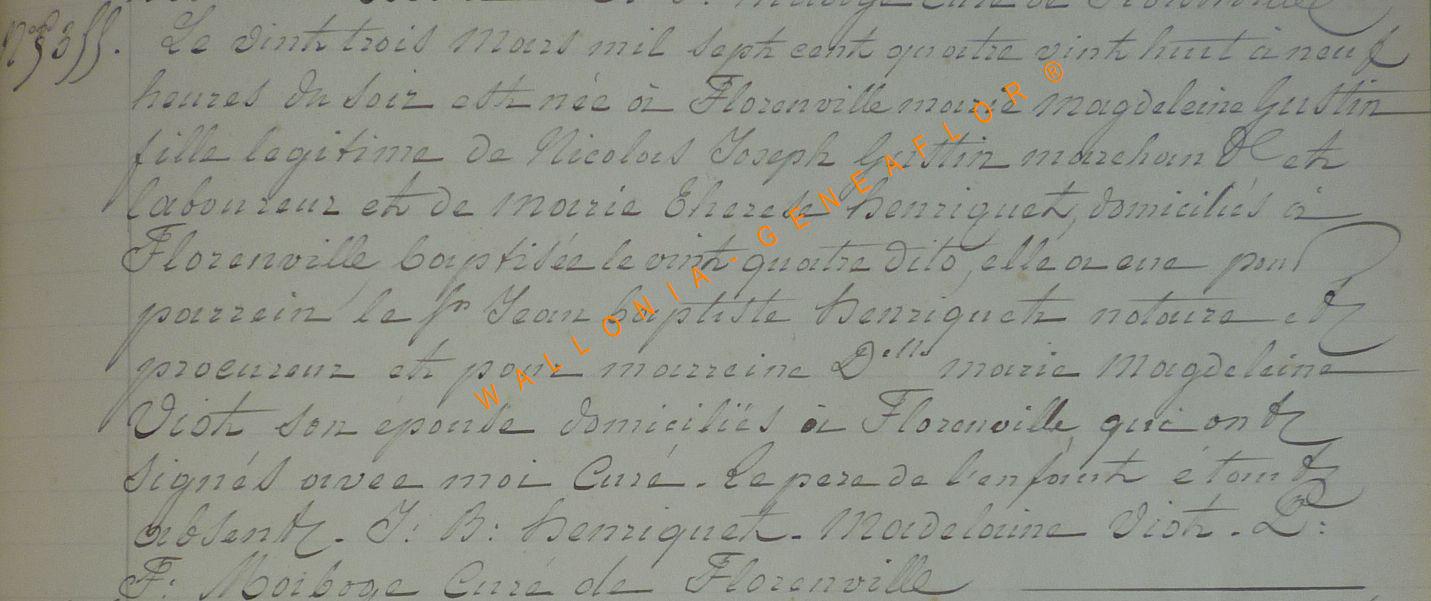 Le vint trois mars mil sept cent quatre vint huit à neuf
heures du soir est née à Florenville marie magdeleine Gustin
fille legitime de Nicolas Joseph Gustin marchand et
laboureur et de marie Therese henriquet, domiciliés à
Florenville baptisée le vint quatre dito, elle a eue pour
parrein le Sr Jean baptiste henriquet notaire et
procureur et pour marreine Delle marie magdeleine
Viot son épouse domiciliés à Florenville qui ont
signés avec moi Curé. Le pere de l'enfant étant
absent. J: B: henriquet. Madelaine Viot.
F: Curé de Florenville
WALLONIA-GENEAFLOR ®